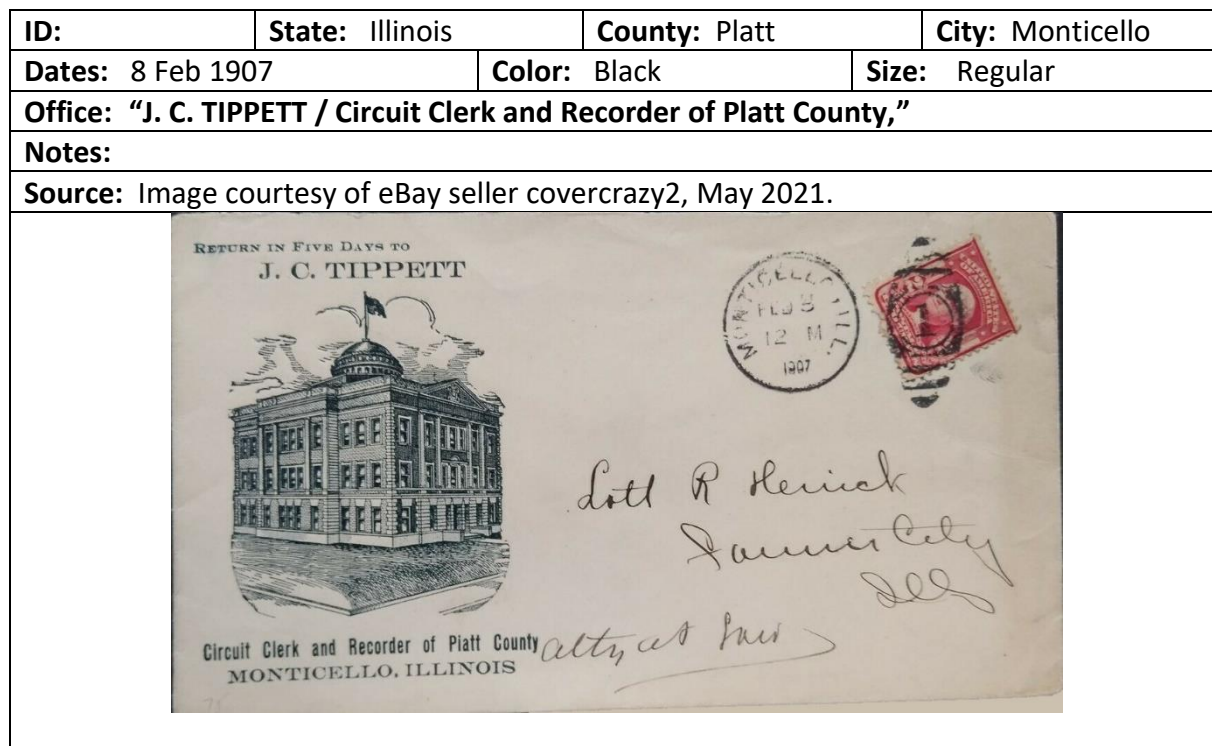 ID: State: Illinois County: Platt City: Monticello
Dates: 8 Feb 1907 Color: Black Size: Regular
Office: “J. C. TIPPETT / Circuit Clerk and Recorder of Platt County,”
Notes:
Source: Image courtesy of eBay seller covercrazy2, May 2021.
RETURN IN FIVE DAYS TO
J. C. TIPPETT
MONTICELLO, ILL.
FEB 8
12 M
1907
Lott R Herrick
Farmer City
Ills
Atty at Law
Circuit Clerk and Recorder of Piatt County
MONTICELLO, ILLINOIS